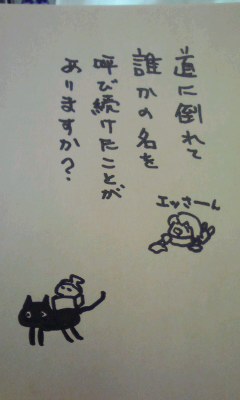 道に倒れて
誰かの名を
呼び続けたことが
ありますか?
エッさーん